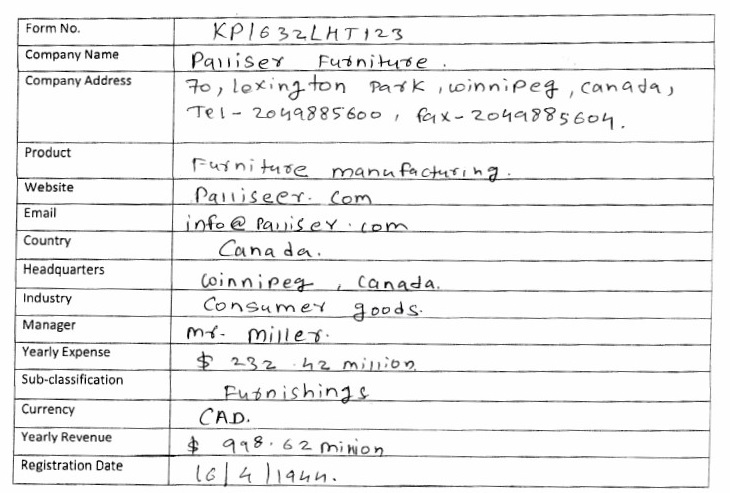 Form No. KP1632LHT123
Company Name Palliser Furniture.
Company Address 70, lexington Park, winnipeg, canada,
Tel - 2049885600, fax - 2049885604.
Product Furniture manufacturing.
Website Palliseer.com
Email info@palliser.com
Country Canada.
Headquarters winnipeg, canada.
Industry Consumer goods.
Manager mr. miller.
Yearly Expense $ 232.42 million
Sub-classification Furnishings
Currency CAD.
Yearly Revenue $ 998.62 million
Registration Date 16/4/1944.